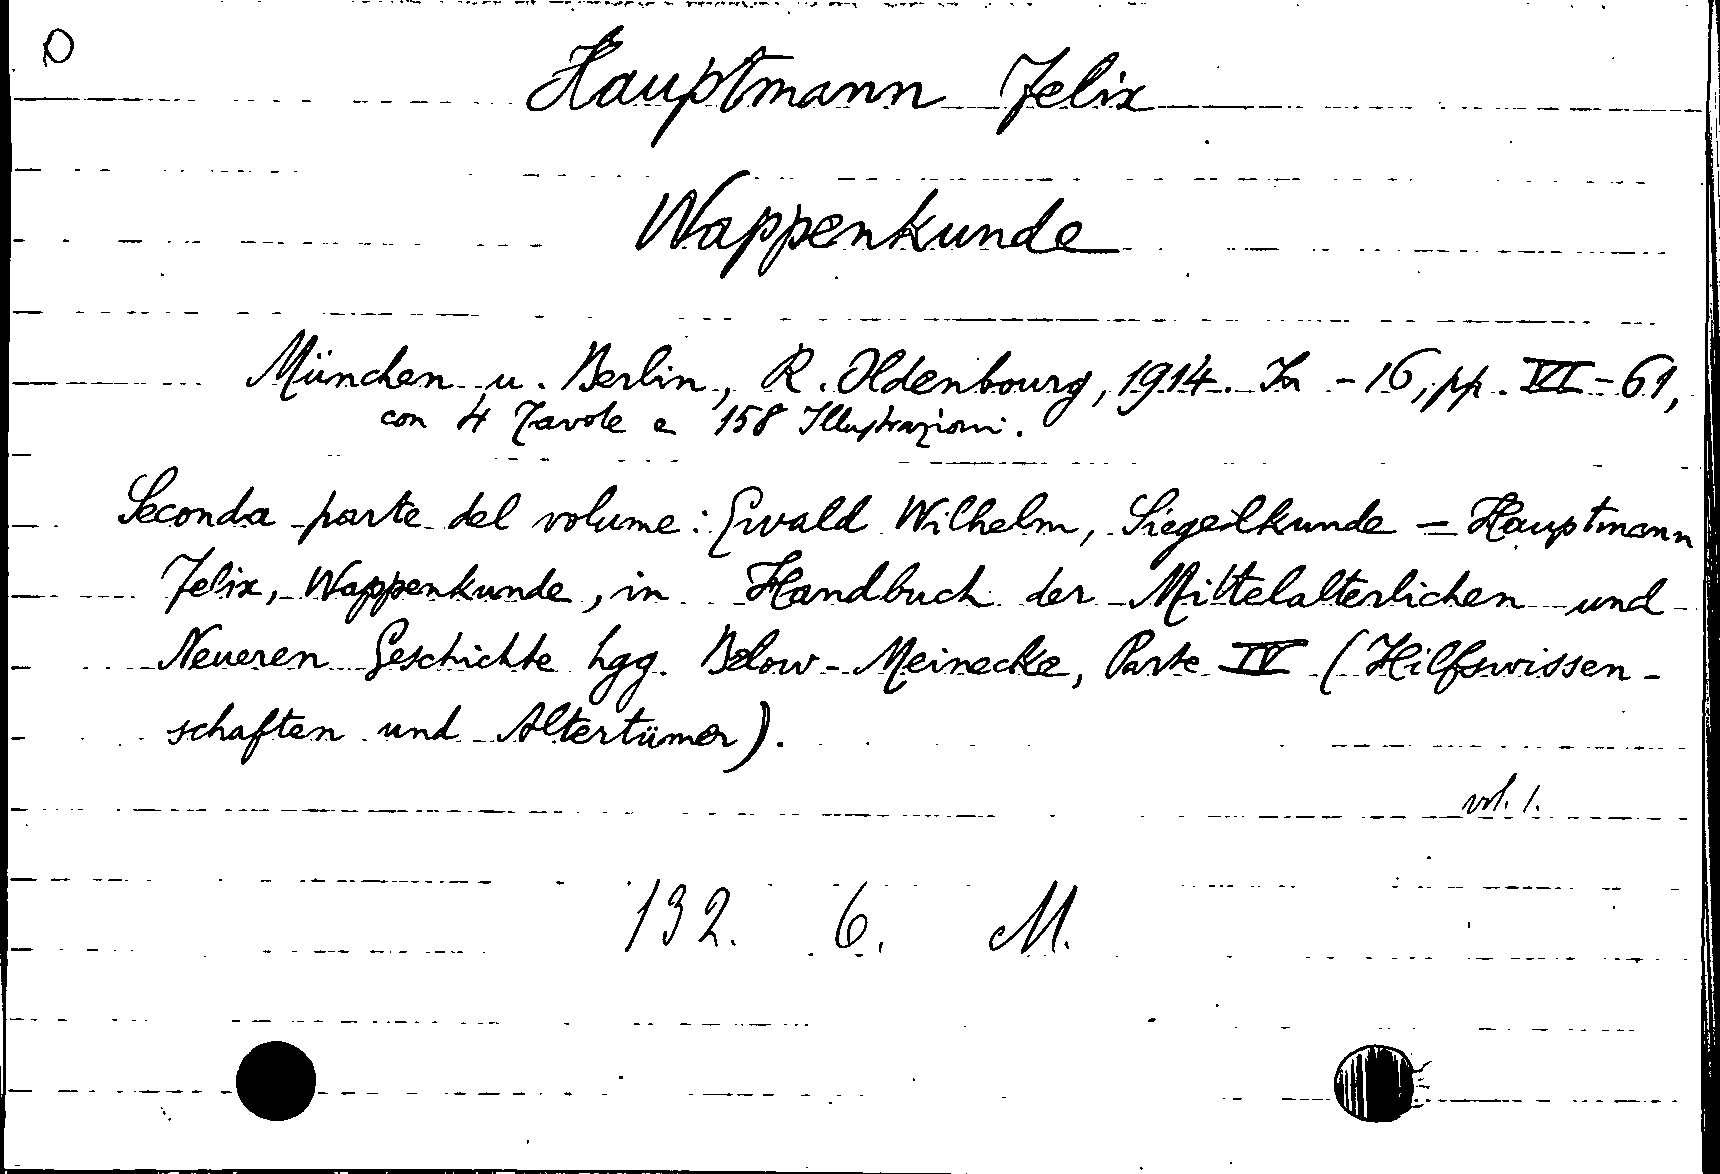 D
Hauptmann Felix
Wappenkunde
München u. Berlin, R. Oldenbourg, 1914. In - 16, pp. VI - 61,
con 4 Tavole e 158 Illustrazioni.
Seconda parte del volume: Ewald Wilhelm, Siegelkunde = Hauptmann
Felix, Wappenkunde, in Handbuch der Mittelalterlichen und
Neueren Geschichte hgg. Below - Meinecke, Parte IV (Hilfswissen-
schaften und Altertümer).
vol. 1.
132. 6. M.